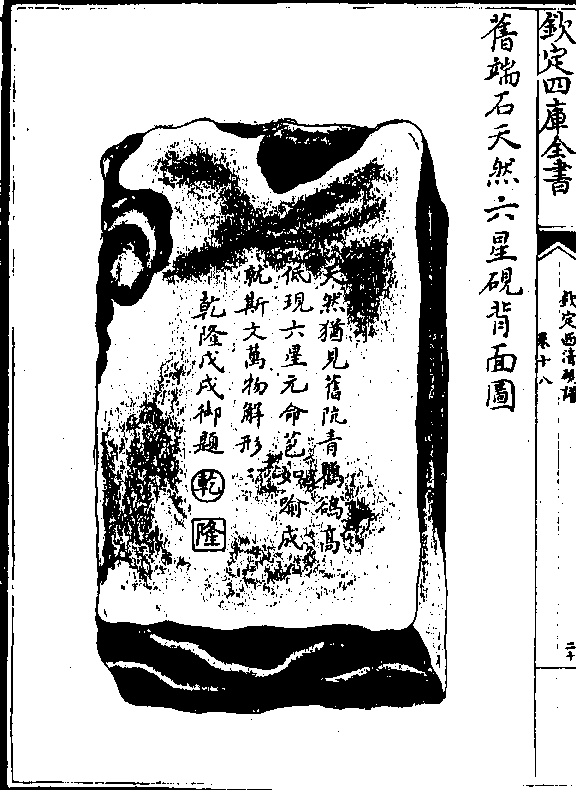 欽定四庫全書
欽定西清硯譜
卷十八
二十
舊端石天然六星硯背面圖
天然猶見舊阬青鸜鵒高
低現六星元命苞如喻成
就斯文萬物解形
乾隆戊戌御題
乾
隆